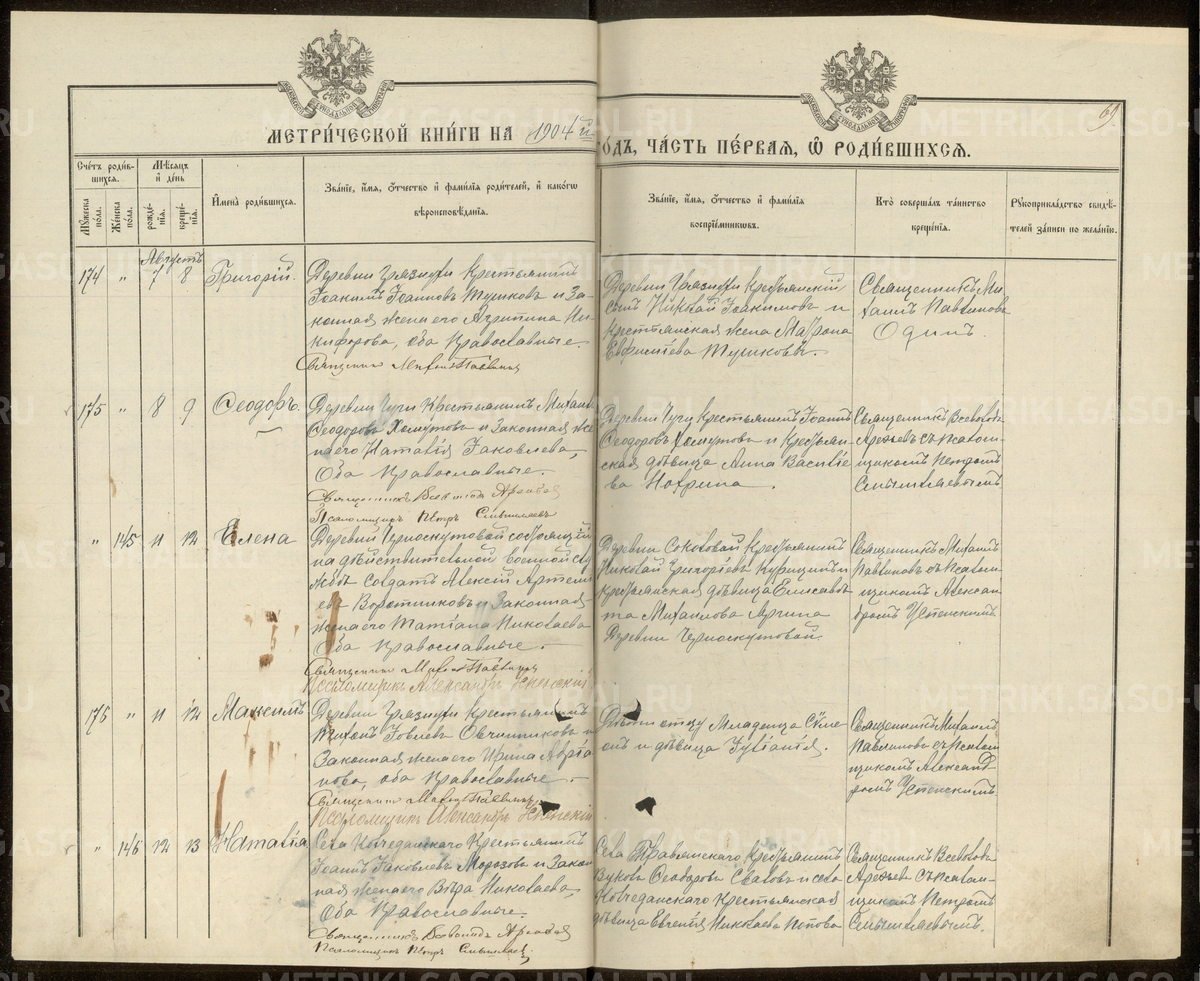 МЕТРИ́ЧЕСКОЙ КНИ́ГИ НА 1904й
ГО́ДЪ, ЧА́СТЬ ПЕ́РВАЯ, Ѡ РОДИ́ВШИХСЯ.
69
Счетъ роди́вшихся.
Мѣсяцъ и҆ день
Мꙋжеска по́ла.
Же́нска по́ла.
рожде́нїя.
креще́нїя.
И҆мена̀ роди́вшихся.
Зва́нїе, и҆́мя, ѻ҆́тчество и҆ фами́лїя роди́телей, и҆ како́гѡ
вѣроисповѣ́данїя.
Зва́нїе, и҆́мя, ѻ҆́тчество и҆ фами́лїя
воспрїе́мникѡвъ.
Кто̀ соверша́лъ та́инство
креще́нїя.
Рꙋкоприкла́дство свидѣ́телей за́писи по жела́нїю.
Августъ
174 " 7 8 Григорій.
Деревни Грязнухи крестьянинъ
Іоакимъ Іоанновъ Тушковъ и за-
конная жена его Агрипина Ни-
кифорова, оба православные.
Священникъ Михаилъ Павлиновъ
Деревни Грязнухи крестьянскій
сынъ Николай Іоакимовъ и
крестьянская жена Матрона
Евфисіева Тушковы.
Священникъ Ми-
хаилъ Павлиновъ
Одинъ.
175 " 8 9 Ѳеодоръ.
крестьянинъ Михаилъ
Ѳеодоровъ Хомутовъ и законная же-
на его Наталія Іаковлева,
Оба православные.
Священникъ Всеволодъ
Псаломщикъ Петръ
крестьянинъ Іоаннъ
Ѳеодоровъ Хомутовъ и крестьян-
ская дѣвица Анна Василіе-
ва Нохрина.
Священникъ Всеволодъ
съ псалом-
щикомъ Петромъ
" 145 11 12 Елена
Деревни Черноскутовой состоящій
на дѣйствительной военной слу-
жбѣ солдатъ Алексій Артемі-
евъ Воротниковъ и законная
жена его Татіана Николаева
Оба православные.
Священникъ Михаилъ Павлиновъ
Псаломщикъ Александръ Успенскій
Деревни Соколовой крестьянинъ
Николай Григоріевъ и
крестьянская дѣвица Елисаве-
та Михаилова
Деревни Черноскутовой.
Священникъ Михаилъ
Павлиновъ съ псалом-
щикомъ Алексан-
дромъ Успенскимъ
176 " 11 12 Максимъ
Деревни Грязнухи крестьянинъ
Тихонъ Іовлевъ Овчинниковъ и
законная жена его Ирина Адріа-
нова, оба православные.
Священникъ Михаилъ Павлиновъ
Псаломщикъ Александръ Успенскій
Дѣти отцу младенца Симе-
онъ и дѣвица Іуліанія.
Священникъ Михаилъ
Павлиновъ съ псалом-
щикомъ Александ-
ромъ Успенскимъ
" 146 12 13 Наталія
Села Колчеданскаго крестьянинъ
Іоаннъ Іаковлевъ Морозовъ и закон-
ная жена его Вѣра Николаева,
Оба православные.
Священникъ Всеволодъ
Псаломщикъ Петръ
Села Травянскаго крестьянинъ
Ѳеодоровъ и села
Колчеданскаго крестьянская
дѣвица Евгенія Николаева Попова
Священникъ Всеволодъ
съ псалом-
щикомъ Петромъ
METRIKI.GASO-URAL.RU